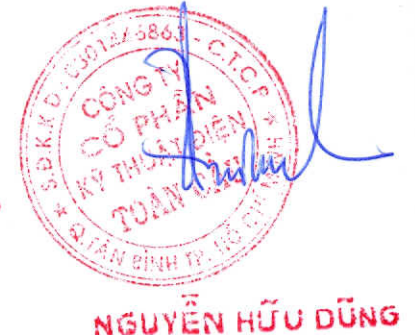 S.Đ.K.K.D: 0301446863 - C.T.C.P
CÔNG TY
CỔ PHẦN
KỸ THUẬT ĐIỆN
TOÀN
Q.TÂN BÌNH TP. HỒ CHÍ MINH
NGUYỄN HỮU DŨNG